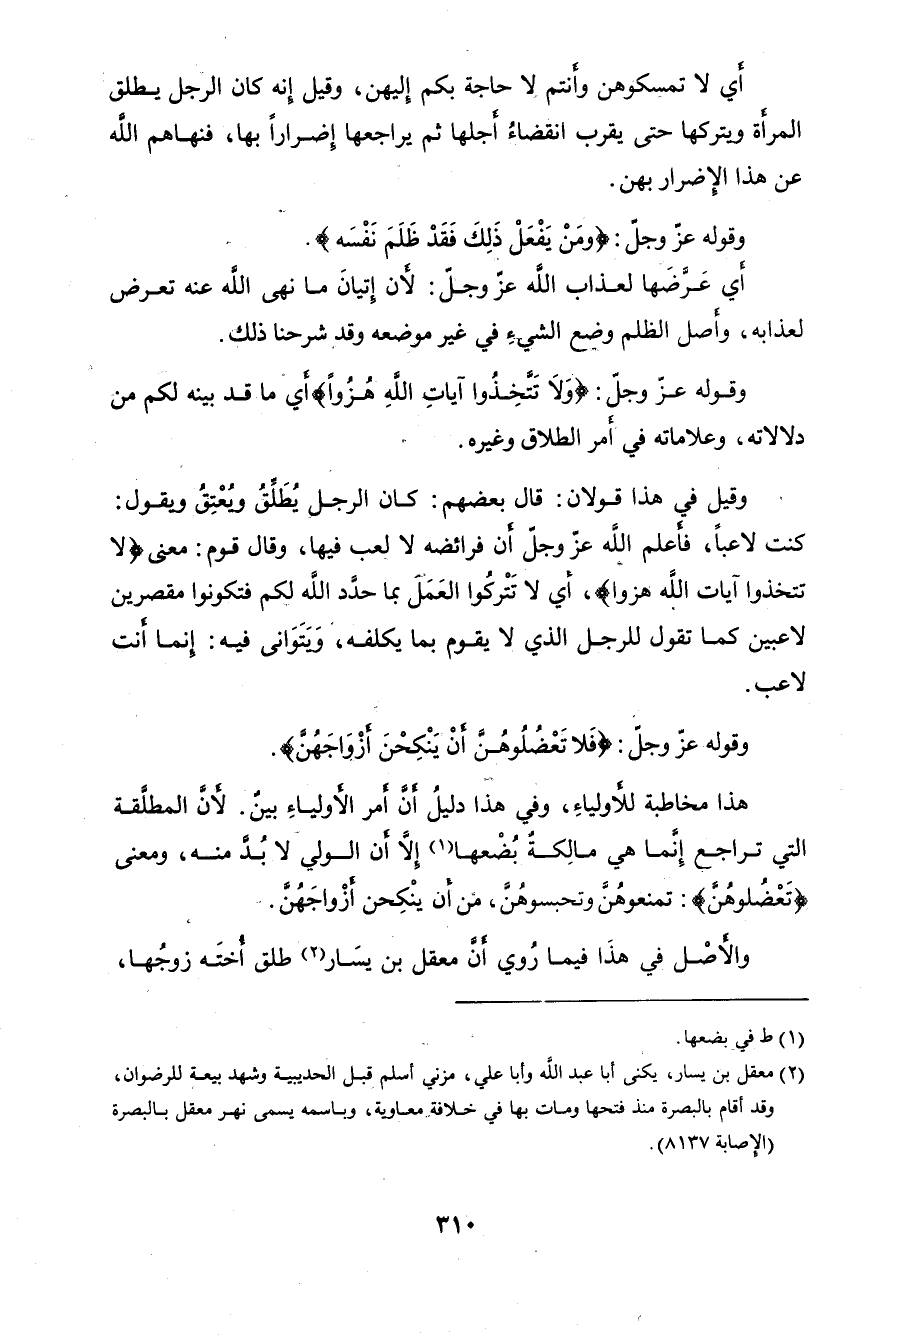 أَي لا تمسكوهن وأَنتم لا حاجة بكم إليهن، وقيل إنه كان الرجل يـطلق
المرأَة ويتركها حتى يقرب انقضاءُ أَجلها ثم يراجعها إضـراراً بها، فنهـاهم اللَّه
عن هذا الإضرار بهن.
وقوله عزّ وجلّ: ﴿ومَنْ يَفْعَلْ ذَلِكَ فَقَدْ ظَلَمَ نَفْسَه﴾.
أَي عَـرَّضَها لعـذاب اللَّه عزّ وجـلّ: لأَن إتيانَ مـا نهى اللَّه عنه تعـرض
لعذابه، وأَصل الظلم وضع الشيءِ في غير موضعه وقد شرحنا ذلك.
وقـوله عـزّ وجلّ: ﴿وَلَا تَتَّخِذُوا آيَاتِ اللَّهِ هُـزُواً﴾أَي ما قـد بينه لكم من
دلالاته، وعلاماته في أَمر الطلاق وغيره.
وقيل في هذا قـولان: قال بعضهم: كـان الرجـل يُطَلِّقُ ويُعْتِقُ ويقـول:
كنت لاعباً، فأَعلم اللَّه عزّ وجلّ أَن فرائضه لا لعب فيها، وقال قوم: معنى ﴿لا
تتخذوا آيات اللَّه هزوا﴾، أَي لا تَتْركُوا العَمَلَ بما حدَّد اللَّه لكم فتكونوا مقصرين
لاعبين كمـا تقول للرجـل الذي لا يقـوم بمـا يكلفـه، وَيَتَوَانى فيـه: إنمـا أَنت
لاعب.
وقوله عزّ وجلّ: ﴿فَلا تَعْضُلُوهُـنَّ أَنْ يَنْكِحْنَ أَزْوَاجَهُنَّ﴾.
هذا مخاطبة للأَولياءِ، وفي هذا دليلُ أَنَّ أَمر الأَوليـاءِ بينٌ. لأَنَّ المطلَّقـة
التي تـراجـع إنَّمـا هي مـالِكـةٌ بُضْعهـا(١) إلَّا أَن الـولي لا بُـدَّ منـه، ومعنى
﴿تَعْضُلوهُنَّ﴾: تمنعوهُنَّ وتحبسوهُنَّ، من أَن ينْكِحن أَزْواجَهُنَّ.
والأَصْـل في هذَا فيمـا رُوي أَنَّ معقل بن يسَـار(٢) طلق أُختَـه زوجُهـا،
(١) ط في بضعها.
(٢) معقل بن يسار، يكنى أبا عبد اللَّه وأبا علي، مزني أسلم قبل الحديبية وشهد بيعة للرضوان،
وقد أقام بالبصرة منذ فتحها ومـات بها في خـلافة معـاوية، وبـاسمه يسمى نهـر معقل بـالبصرة
(الإصابة ٨١٣٧).
٣١٠